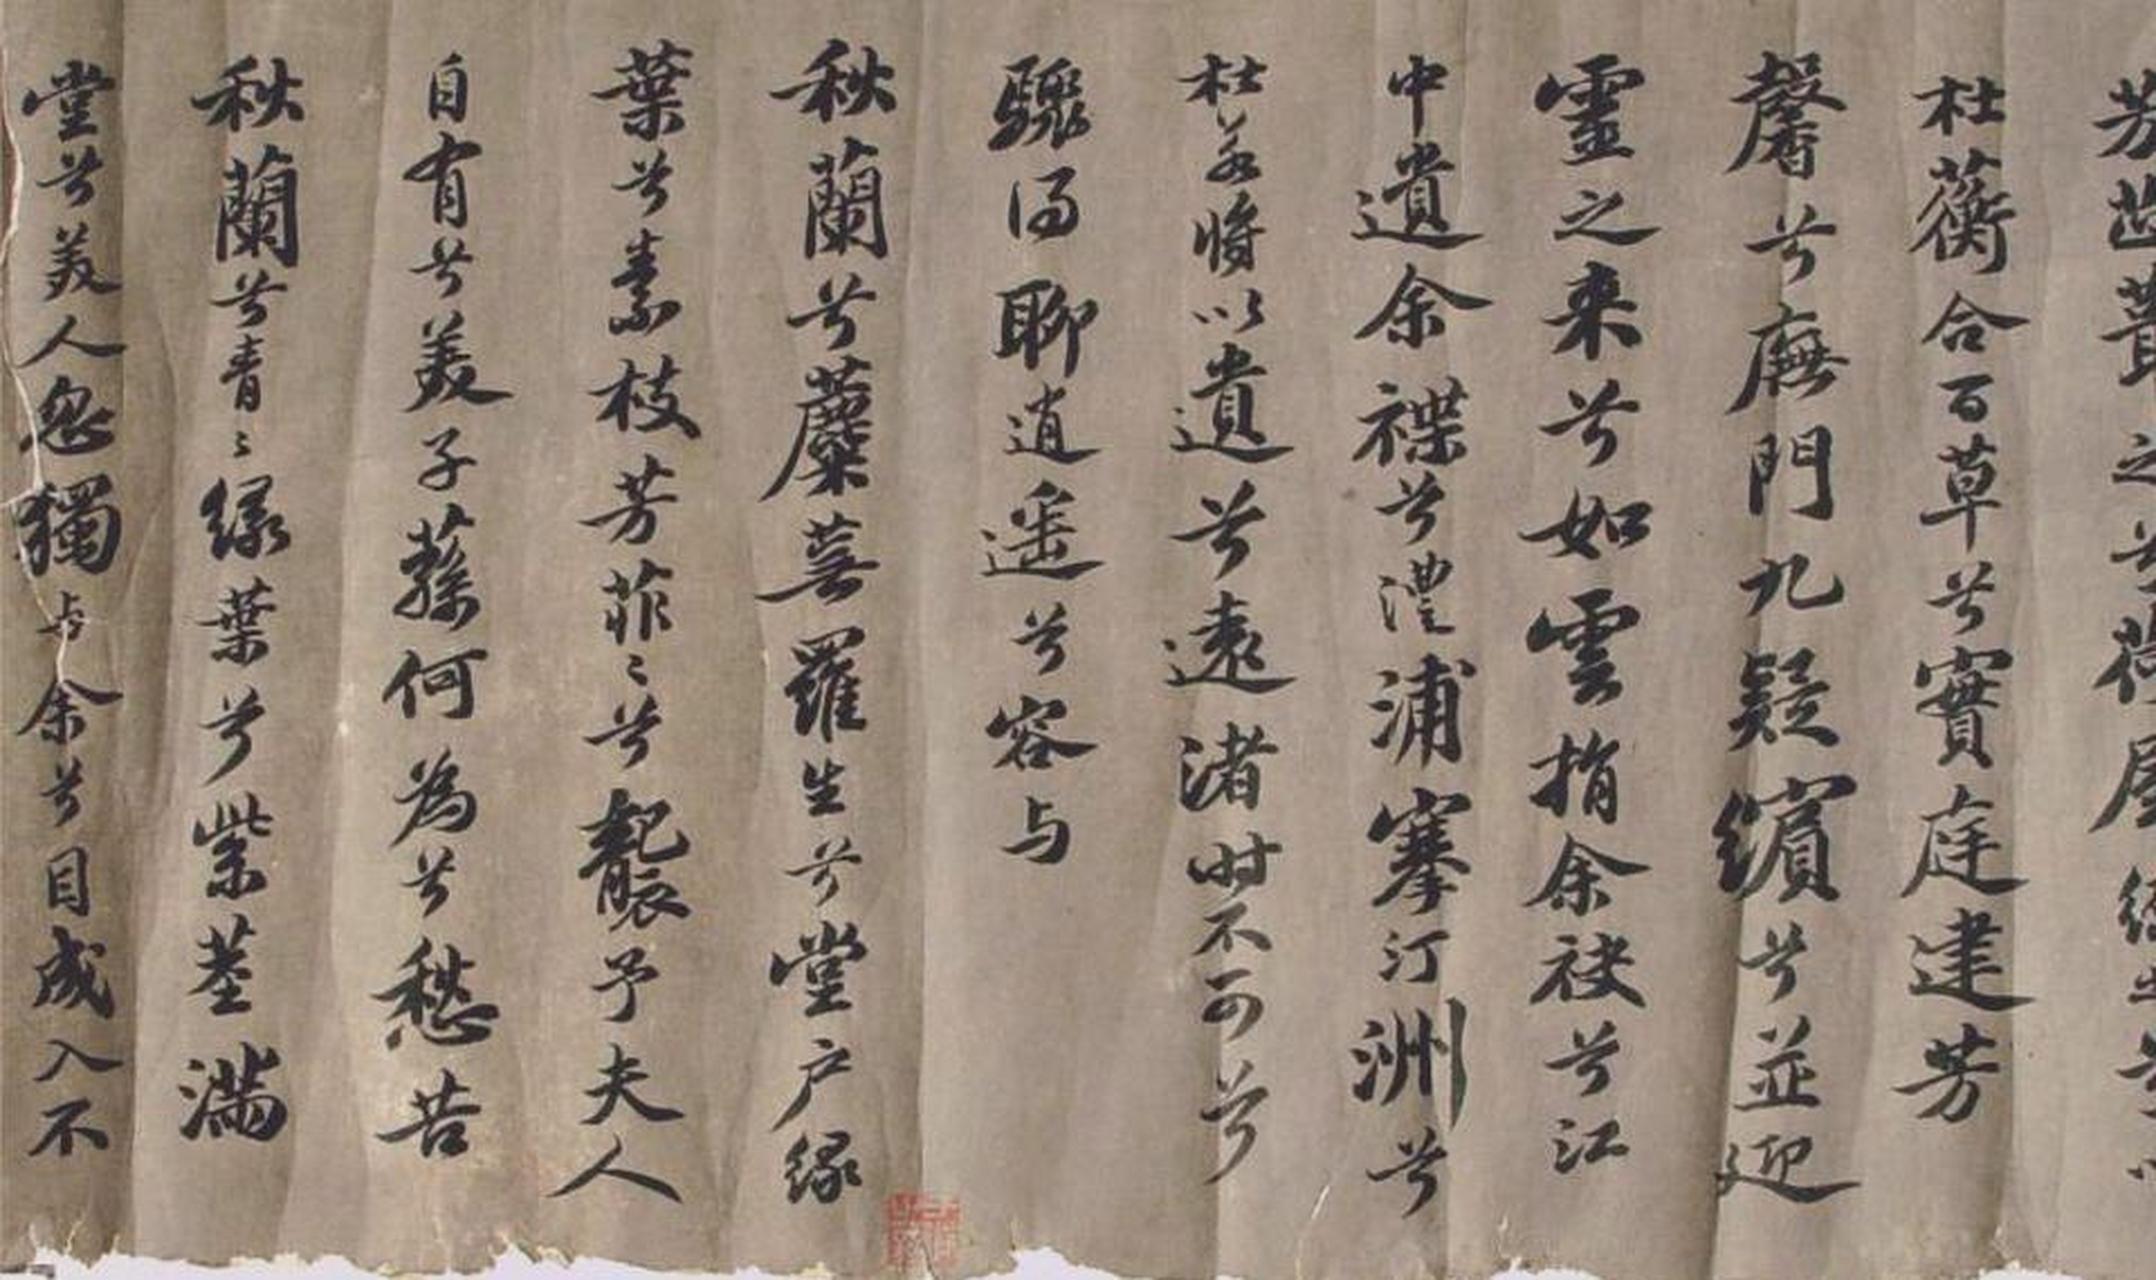 芳茝葺之兮荷屋繚之兮以
杜蘅合百草兮實庭建芳
馨兮廡門九疑繽兮並迎
靈之来兮如雲捐余袂兮江
中遺余褋兮澧浦搴汀洲兮
杜若将以遺兮遠渚时不可兮
驟得聊逍遥兮容与
秋蘭兮蘪蕪羅生兮堂户緑
葉兮素枝芳菲〻兮襲予夫人
自有兮美子蓀何為兮愁苦
秋蘭兮青〻緑葉兮紫茎滿
堂兮美人忽獨与余兮目成入不